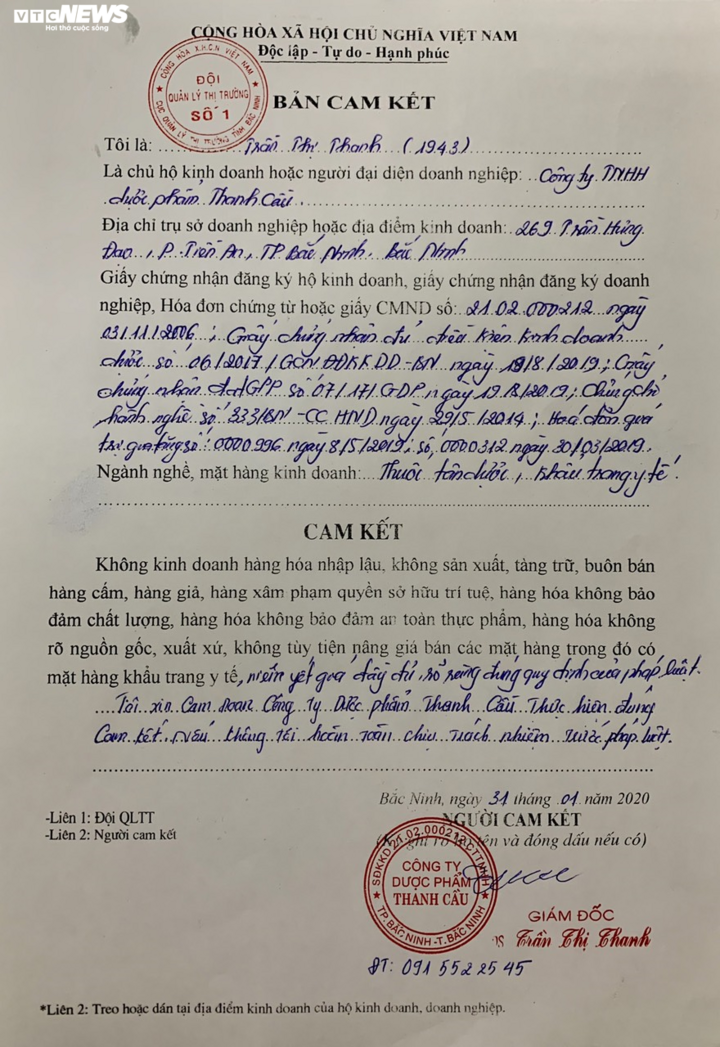 VTC NEWS
Hơi thở cuộc sống
CỘNG HÒA XÃ HỘI CHỦ NGHĨA VIỆT NAM
Độc lập - Tự do - Hạnh phúc
CỘNG HÒA X.H.C.N VIỆT NAM
ĐỘI
QUẢN LÝ THỊ TRƯỜNG
SỐ 1
CỤC QUẢN LÝ THỊ TRƯỜNG TỈNH BẮC NINH
BẢN CAM KẾT
Tôi là: Trần Thị Thanh (1943)
Là chủ hộ kinh doanh hoặc người đại diện doanh nghiệp: Công ty TNHH
dược phẩm Thanh Cầu
Địa chỉ trụ sở doanh nghiệp hoặc địa điểm kinh doanh: 269 Trần Hưng
Đạo, P. Tiền An, TP Bắc Ninh, Bắc Ninh
Giấy chứng nhận đăng ký hộ kinh doanh, giấy chứng nhận đăng ký doanh
nghiệp, Hóa đơn chứng từ hoặc giấy CMND số: 21.02.000212 ngày
03/11/2006; Giấy chứng nhận đủ điều kiện kinh doanh
dược số 06/2017/GCN ĐĐKKDD-BN ngày 19/8/2019; Giấy
chứng nhận đạt GPP số 07/17/GDP ngày 19/8/2019; Chứng chỉ
hành nghề số 333/BN-CC HND ngày 29/5/2014; Hoá đơn giá
trị gia tăng số: 0000996 ngày 8/5/2019; số 0000312 ngày 30/03/2019.
Ngành nghề, mặt hàng kinh doanh: Thuốc tân dược, khẩu trang y tế.
CAM KẾT
Không kinh doanh hàng hóa nhập lậu, không sản xuất, tàng trữ, buôn bán
hàng cấm, hàng giả, hàng xâm phạm quyền sở hữu trí tuệ, hàng hóa không bảo
đảm chất lượng, hàng hóa không bảo đảm an toàn thực phẩm, hàng hóa không
rõ nguồn gốc, xuất xứ, không tùy tiện nâng giá bán các mặt hàng trong đó có
mặt hàng khẩu trang y tế, niêm yết giá đầy đủ, rõ ràng đúng quy định của pháp luật.
Tôi xin cam đoan Công ty Dược phẩm Thanh Cầu thực hiện đúng
cam kết, nếu không tôi hoàn toàn chịu trách nhiệm trước pháp luật.
Bắc Ninh, ngày 31 tháng 01 năm 2020
-Liên 1: Đội QLTT
NGƯỜI CAM KẾT
-Liên 2: Người cam kết
(Ký, ghi rõ họ tên và đóng dấu nếu có)
SĐKKD 21.02.000212 - CTTNHH
CÔNG TY
DƯỢC PHẨM
THANH CẦU
TP.BẮC NINH -T.BẮC NINH
GIÁM ĐỐC
DS Trần Thị Thanh
ĐT: 091 552 25 45
*Liên 2: Treo hoặc dán tại địa điểm kinh doanh của hộ kinh doanh, doanh nghiệp.